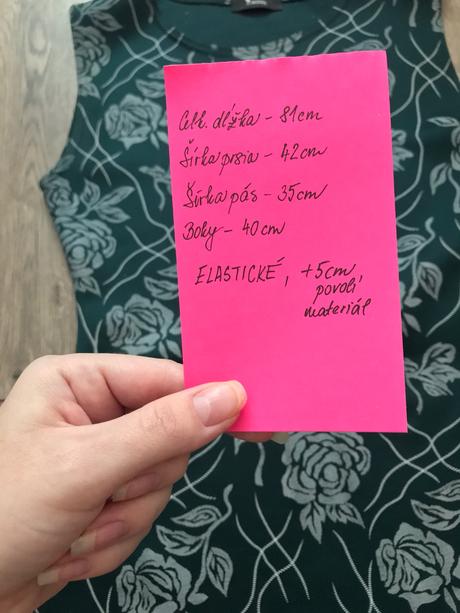 Celk. dĺžka - 81cm
Šírka prsia - 42cm
Šírka pás - 35cm
Boky - 40cm
ELASTICKÉ, +5cm
povolí
materiál